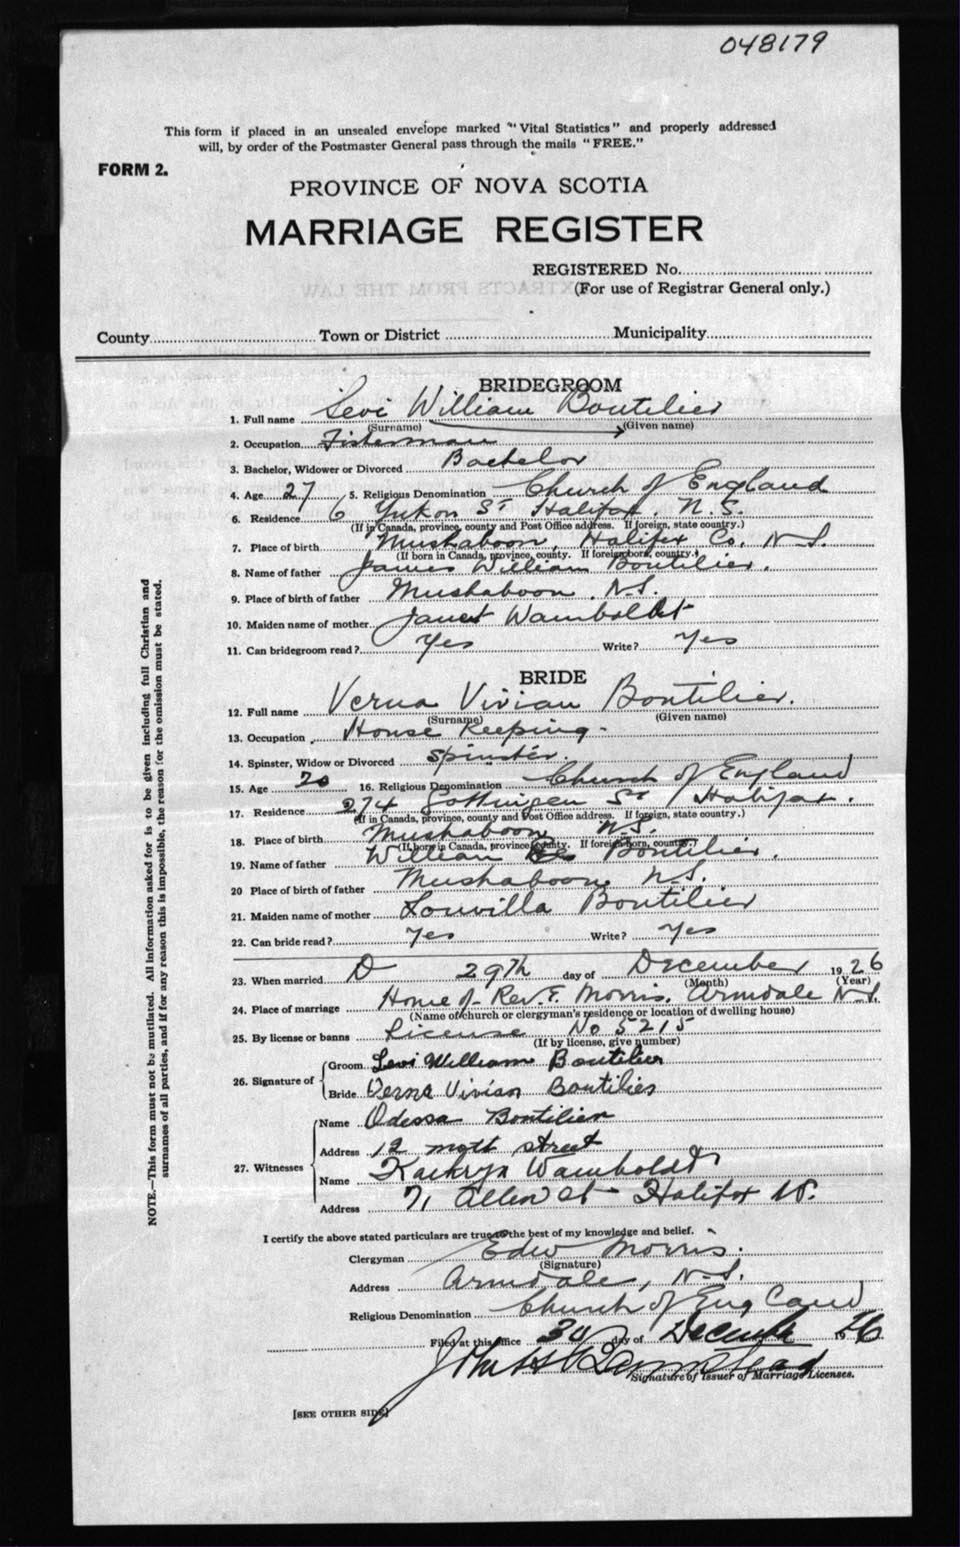 048179
This form if placed in an unsealed envelope marked "Vital Statistics" and properly addressed
will, by order of the Postmaster General pass through the mails "FREE."
FORM 2.
PROVINCE OF NOVA SCOTIA
MARRIAGE REGISTER
REGISTERED No.
(For use of Registrar General only.)
County Town or District Municipality
BRIDEGROOM
1. Full name Levi William Boutilier
(Surname) (Given name)
2. Occupation Fisherman
3. Bachelor, Widower or Divorced Bachelor
4. Age 27 5. Religious Denomination Church of England
6. Residence 6 Yukon St Halifax, N.S.
(If in Canada, province, county and Post Office address. If foreign, state country.)
7. Place of birth Mushaboon, Halifax Co. N.S.
(If born in Canada, province, county. If foreign born, country.)
8. Name of father James William Boutilier.
9. Place of birth of father Mushaboon. N.S.
10. Maiden name of mother Janet Wamboldt
11. Can bridegroom read? Yes Write? Yes
BRIDE
12. Full name Verna Vivian Boutilier.
(Surname) (Given name)
13. Occupation House Keeping-
14. Spinster, Widow or Divorced Spinster.
15. Age 20 16. Religious Denomination Church of England
17. Residence 274 Gottingen St Halifax.
(If in Canada, province, county and Post Office address. If foreign, state country.)
18. Place of birth Mushaboon N.S.
(If born in Canada, province county. If foreign born, country.)
19. Name of father William Boutilier.
20 Place of birth of father Mushaboon N.S.
21. Maiden name of mother Louvilla Boutilier
22. Can bride read? Yes Write? Yes
23. When married D 29th day of December 1926
(Month) (Year)
24. Place of marriage Home of Rev. E. Morris, Armdale N.S.
(Name of church or clergyman's residence or location of dwelling house)
25. By license or banns License No 5215
(If by license, give number)
26. Signature of Groom Levi William Boutilier
Bride Verna Vivian Boutilier
27. Witnesses Name Odessa Boutilier
Address 12 mott street
Name Kathryn Wamboldt
Address 71 Allen St - Halifax N.S.
I certify the above stated particulars are true to the best of my knowledge and belief.
Clergyman Edw Morris.
(Signature)
Address Armdale, N.S.
Religious Denomination Church of England
Filed at this office 30 day of December 1926
John H
Signature of Issuer of Marriage Licenses.
[SEE OTHER SIDE]
NOTE.—This form must not be mutilated. All information asked for is to be given including full Christian and
surnames of all parties, and if for any reason this is impossible, the reason for the omission must be stated.